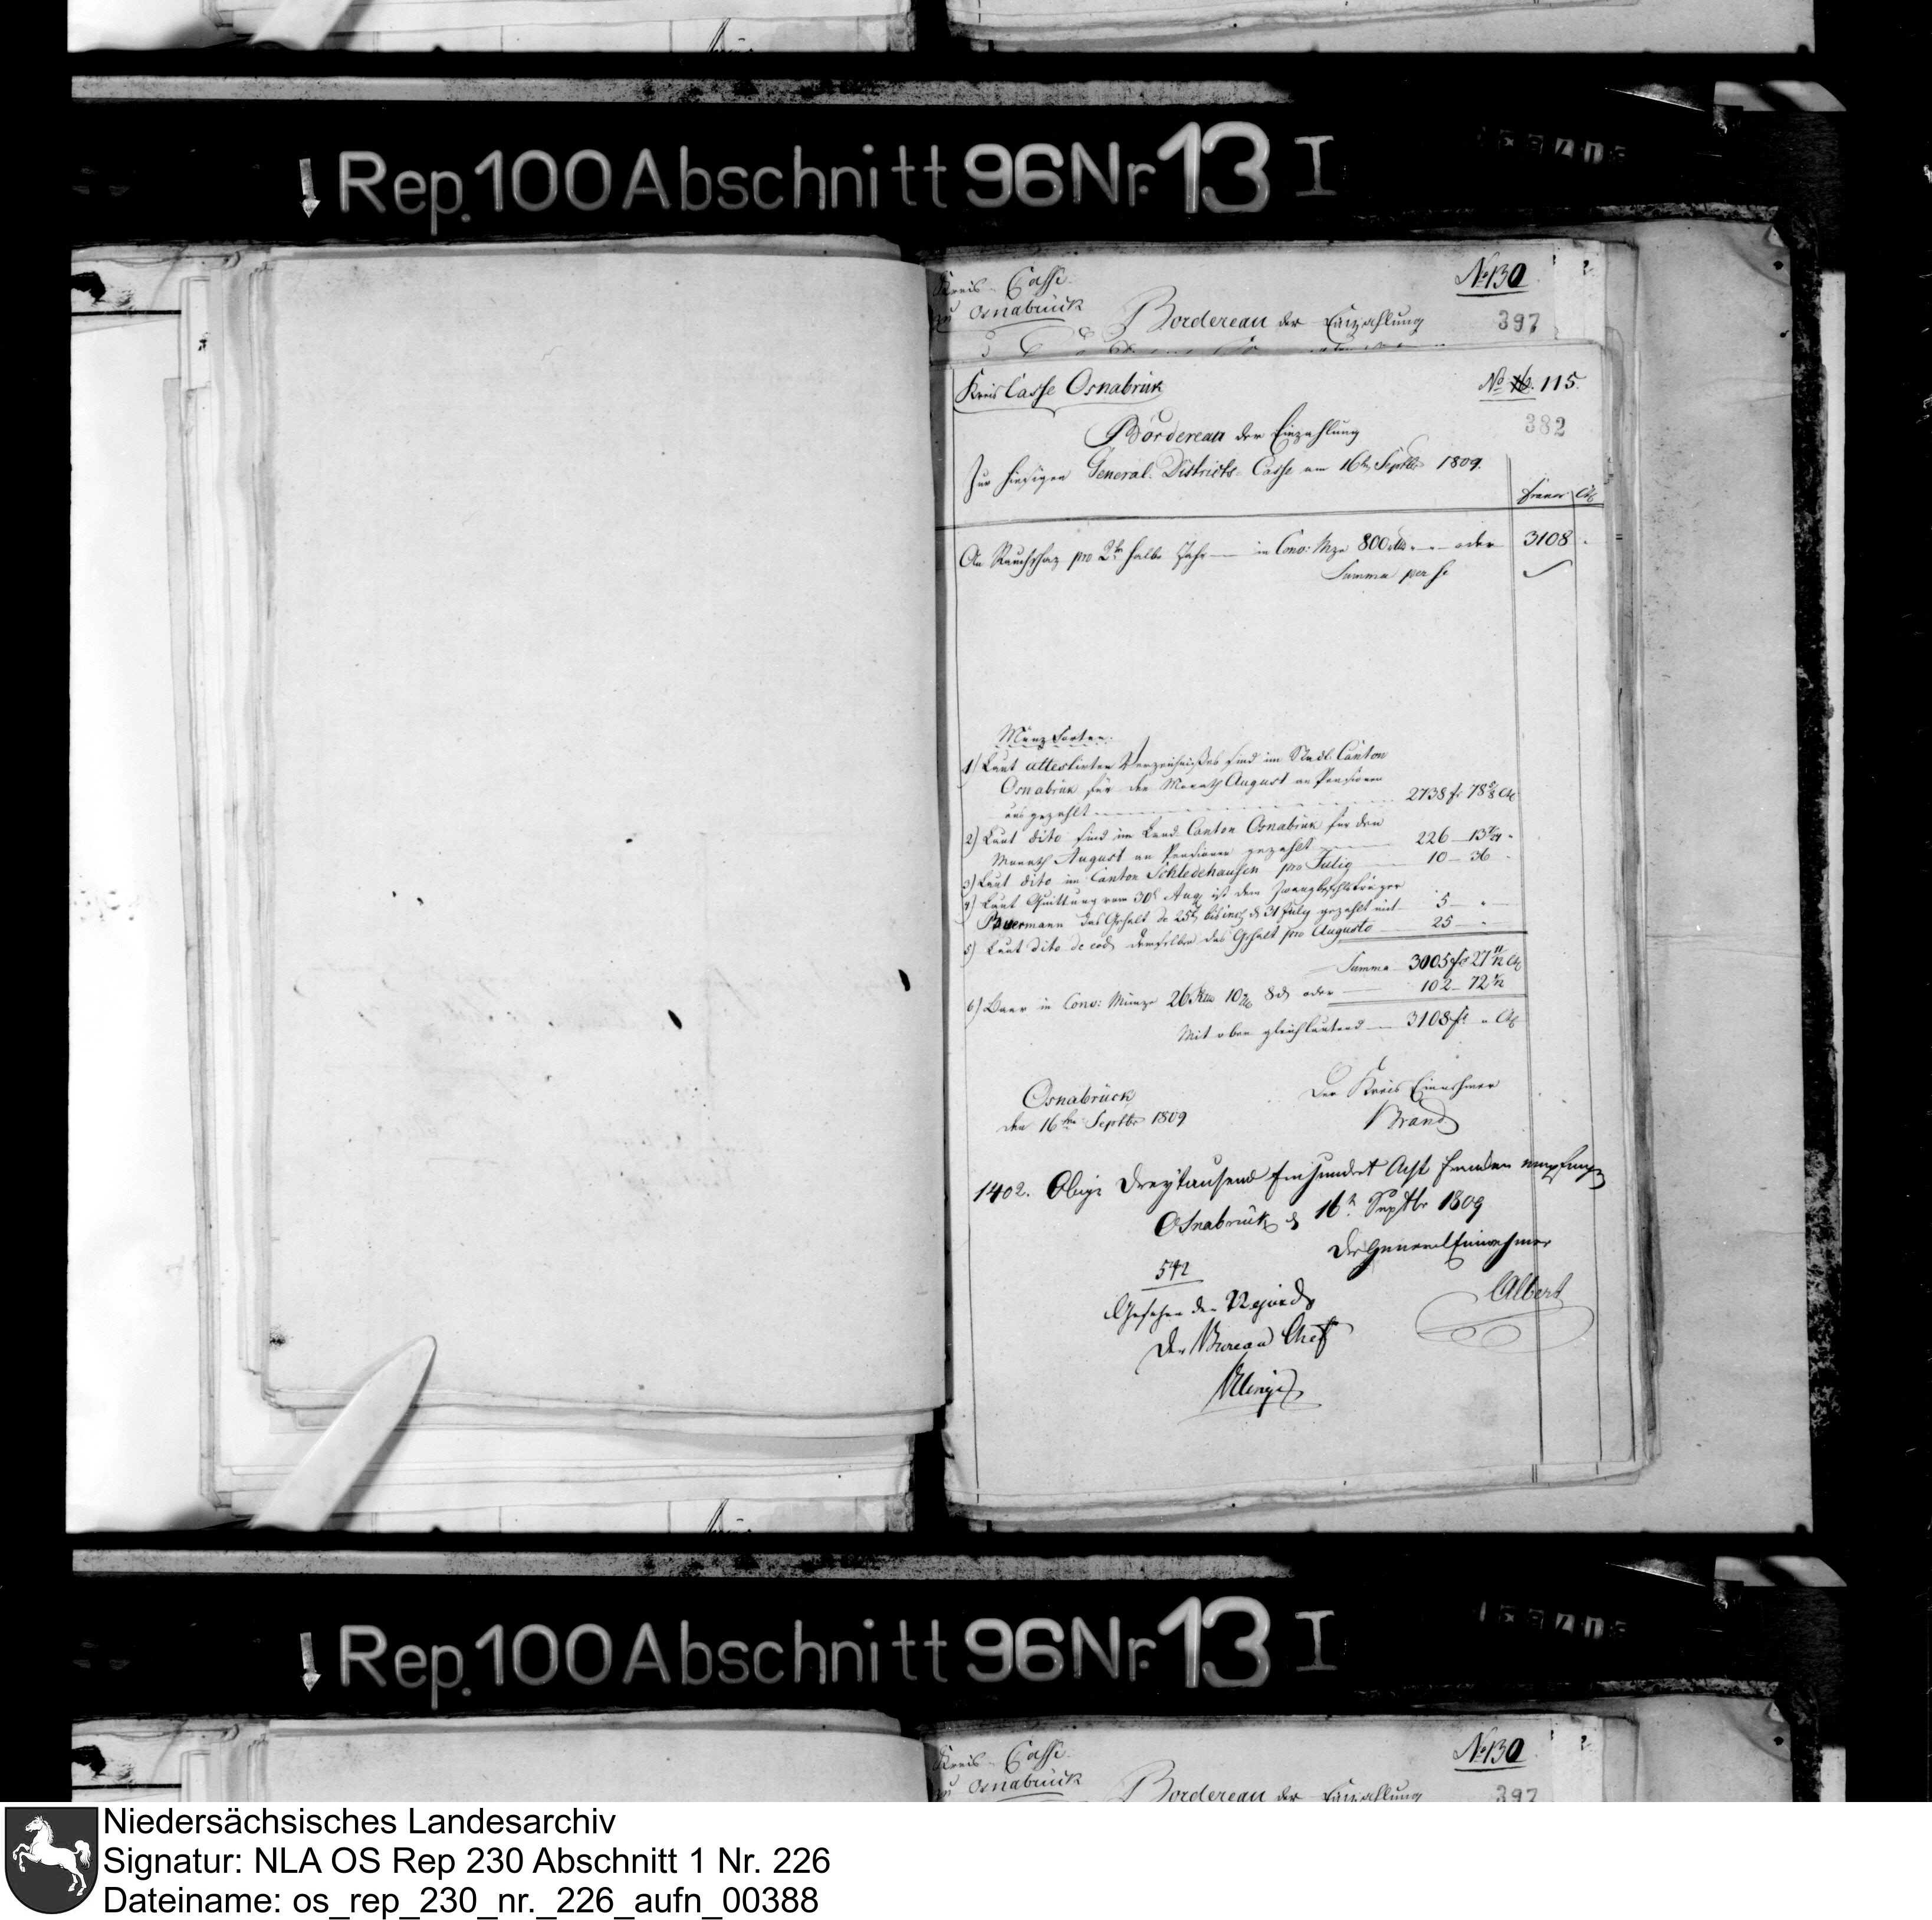 Rep. 100 Abschnitt 96 Nr. 13 I
Kreis-Casse
zu Osnabrück
No 130
Bordereau der Einzahlung
397
KreisCasse Osnabrük
No 16. 115.
Bordereau der Einzahlung
382
Zur hiesigen General-Districts-Casse am 16ten Septbr 1809.
Francs Cts
An Rauchschaz pro 2te halbe Jahr — in Conv: Mze 800 oder 3108
Summa per se
Münz Sorten:
1) Laut attestirten Verzeichnißes sind im Stadt Canton
Osnabrük für den Monath August an Pensionen
ausgezahlt 2738 fr 78 5/8 Cts
2) Laut dito sind im Land-Canton Osnabrük für den
Monath August an Pensionen gezahlt 226 — 13
3) Laut dito im Canton Schledehausen pro Julig 10 — 36
4) Laut Quittung vom 30t Aug ist dem
Bauermann das Gehalt de 25t bis incl. d 31 July gezahlt mit 5 —
5) Laut dito de eod. demselben das Gehalt pro Augusto 25 —
Summa 3005 fr 27 11/12 Cts
6) Baar in Conv: Münze 26 10 8 oder 102 — 72 1/12
Mit oben gleichlautend — 3108 fr " Cts
Osnabrück
den 16ten Septbr 1809
Der Kreis Einnehmer
Brand
1402. Obige Dreytausend Einhundert Acht Franken empfangen
Osnabrück d 16t Septbr 1809
Der General Einnehmer
Albert
542
Gesehen den
Der Bureau Chef
Rep. 100 Abschnitt 96 Nr. 13 I
Kreis-Casse
zu Osnabrück
No 130
Bordereau der Einzahlung
397
Niedersächsisches Landesarchiv
Signatur: NLA OS Rep 230 Abschnitt 1 Nr. 226
Dateiname: os_rep_230_nr._226_aufn_00388